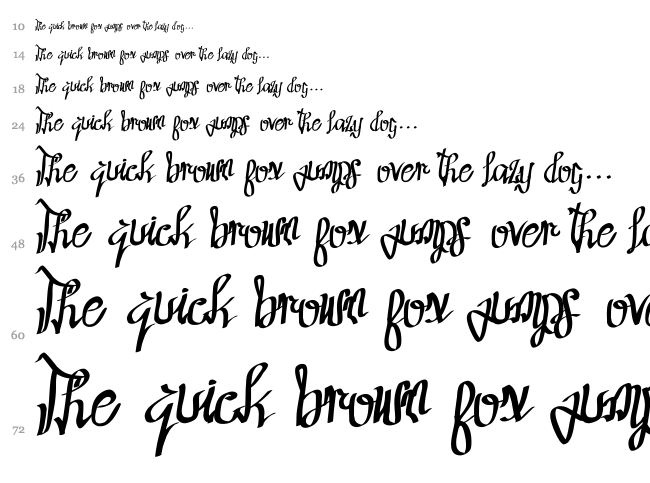 10 The quick brown fox jumps over the lazy dog...
14 The quick brown fox jumps over the lazy dog...
18 The quick brown fox jumps over the lazy dog...
24 The quick brown fox jumps over the lazy dog...
36 The quick brown fox jumps over the lazy dog...
48 The quick brown fox jumps over the la
60 The quick brown fox jumps ov
72 The quick brown fox jump